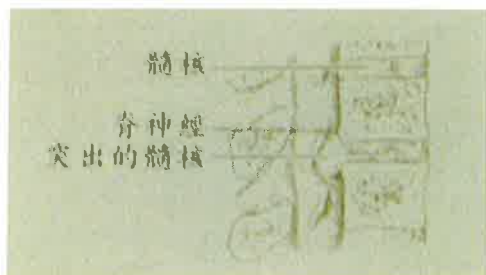 髓核
脊神經
突出的髓核